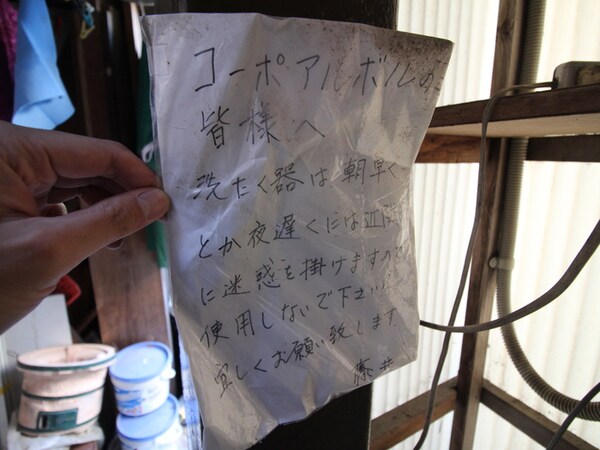 コーポアルボルの
皆様へ
洗たく器は朝早く
とか夜遅くには近隣
に迷惑を掛けますので
使用しないで下さい
宜しくお願い致します
藤井